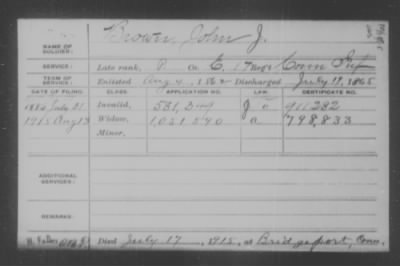 NAME OF SOLDIER: Brown, John J.
SERVICE: Late rank, P Co. E, 17 Reg't Conn Inf
TERM OF SERVICE: Enlisted Aug 4, 1862 Discharged July 19, 1865
DATE OF FILING. CLASS. APPLICATION NO. LAW. CERTIFICATE NO.
1886 July 21 Invalid, 581, J 911282
1915 Aug 13 Widow, 1,051,590 a 798,833
Minor,
ADDITIONAL SERVICES:
REMARKS:
Died July 17, 1915, at Bridgeport, Conn.